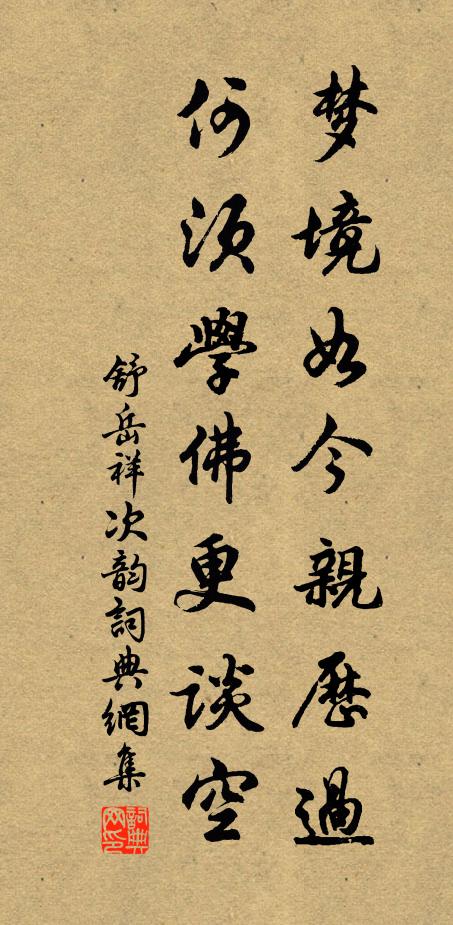 梦境如今親歷過
何须學佛更谈空
舒岳祥次韵詞典網集
詞典网印